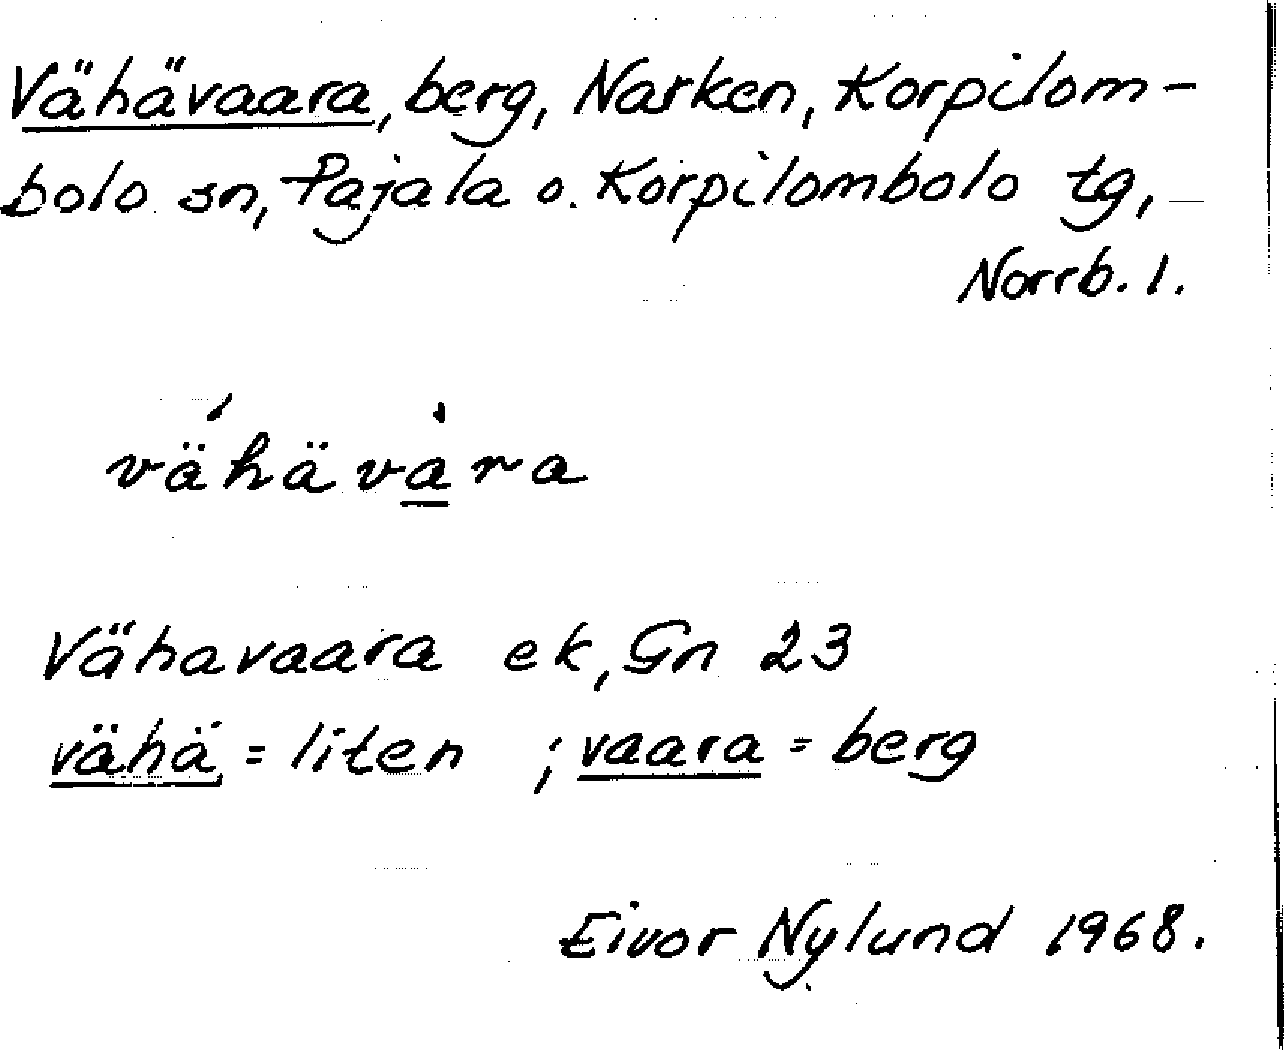 Vähävaara, berg, Narken, Korpilom-
bolo sn, Pajala o. Korpilombolo tg,
Norrb. l.
vähävara
Vähavaara ek, Gn 23
vähä = liten ; vaara = berg
Eivor Nylund 1968.